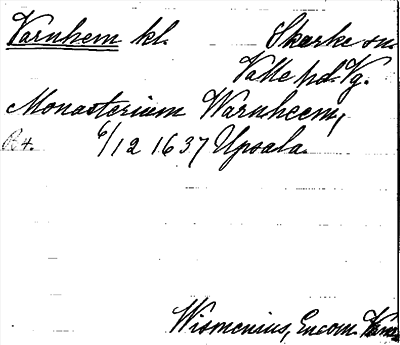 Varnhem kl. Skarke sn.
Valle hd. Vg.
Monasterium Warnheem,
R4. 6/12 1637 Upsala.
Wismenius, Encom.